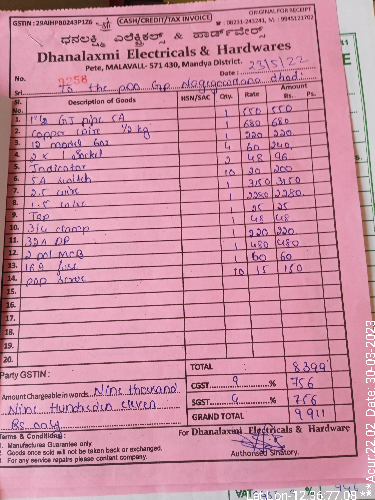 GSTIN : 29AIHPB0243P1Z6
CASH/CREDIT/TAX INVOICE
ORIGINAL FOR RECEIPT
: 08231-243243, M : 9945121702
ಧನಲಕ್ಷ್ಮಿ ಎಲೆಕ್ಟ್ರಿಕಲ್ಸ್ & ಹಾರ್ಡ್‌ವೇರ್ಸ್
Dhanalaxmi Electricals & Hardwares
Pete, MALAVALL- 571 430, Mandya District.
No. 9258 Date : 23/5/22
Sri To the PDO Gp
Sl. No. Description of Goods HSN/SAC Qty. Rate Amount Rs. Ps.
1. 1 550 550
2. Copper wire 1/2 kg 1 680 680
3. 12 model box 1 220 220
4. 2 x 1 socket 4 60 240
5. Indicator 2 48 96
6. 5A switch 10 20 200
7. 2.5 wire 1 3150 3150
8. 1.5 wire 1 2280 2280
9. Tap 1 25 25
10. 3/4 clamp 1 48 48
11. 32A DP 1 220 220
12. 2 pol MCB 1 480 480
13. 16A fuse 1 60 60
14. pop screw 10 15 150
15.
16.
17.
18.
19.
20.
Party GSTIN :
TOTAL 8399
CGST 9 % 756
SGST 9 % 756
GRAND TOTAL 9911
Amount Chargeable in words. Nine thousand
Nine Hundredon eleven
Rs only
Terms & Conditions :
1. Manufactures Guarantee only
2. Goods once sold will not be taken back or exchanged.
3. For any service repairs please contant company.
For Dhanalaxmi Electricals & Hardware
Authorised Sinatory.
VAT
Acur:22.02 Date: 30-03-2023